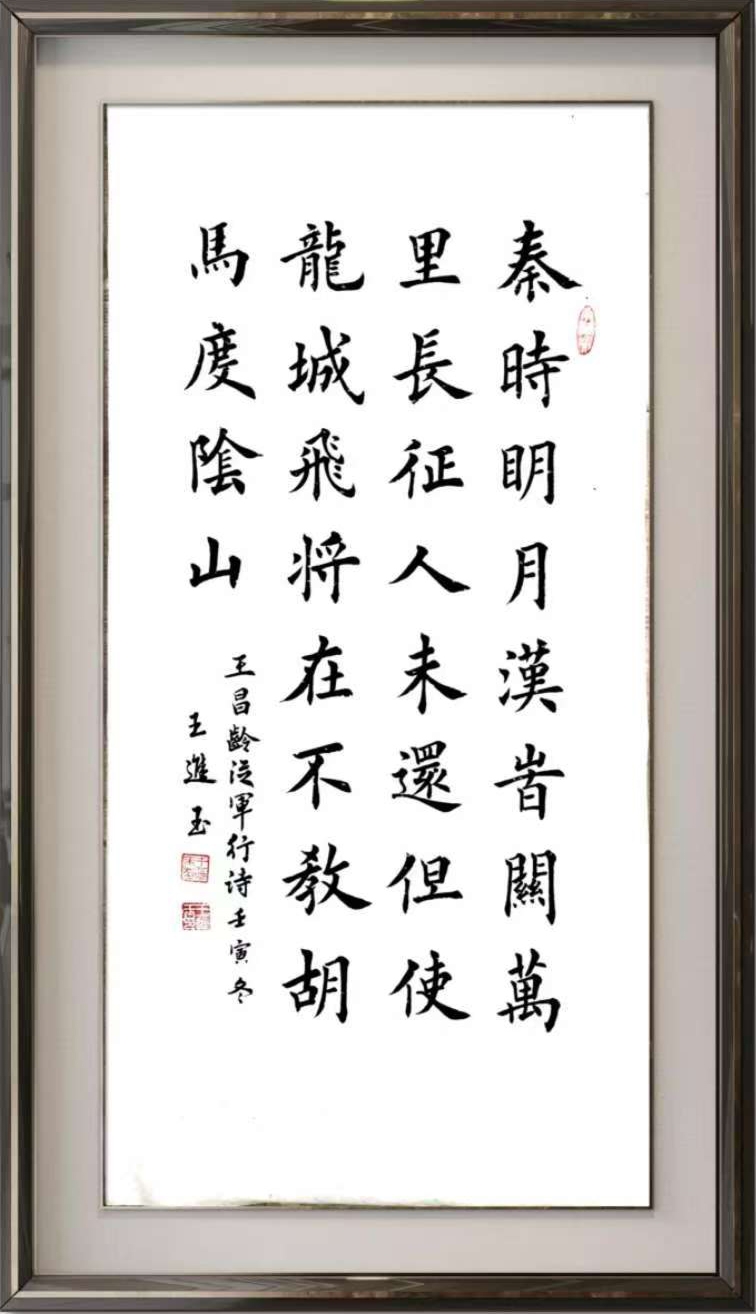 秦時明月漢旹關萬
里長征人未還但使
龍城飛將在不教胡
馬度陰山
王昌齡從軍行诗壬寅冬
王進玉